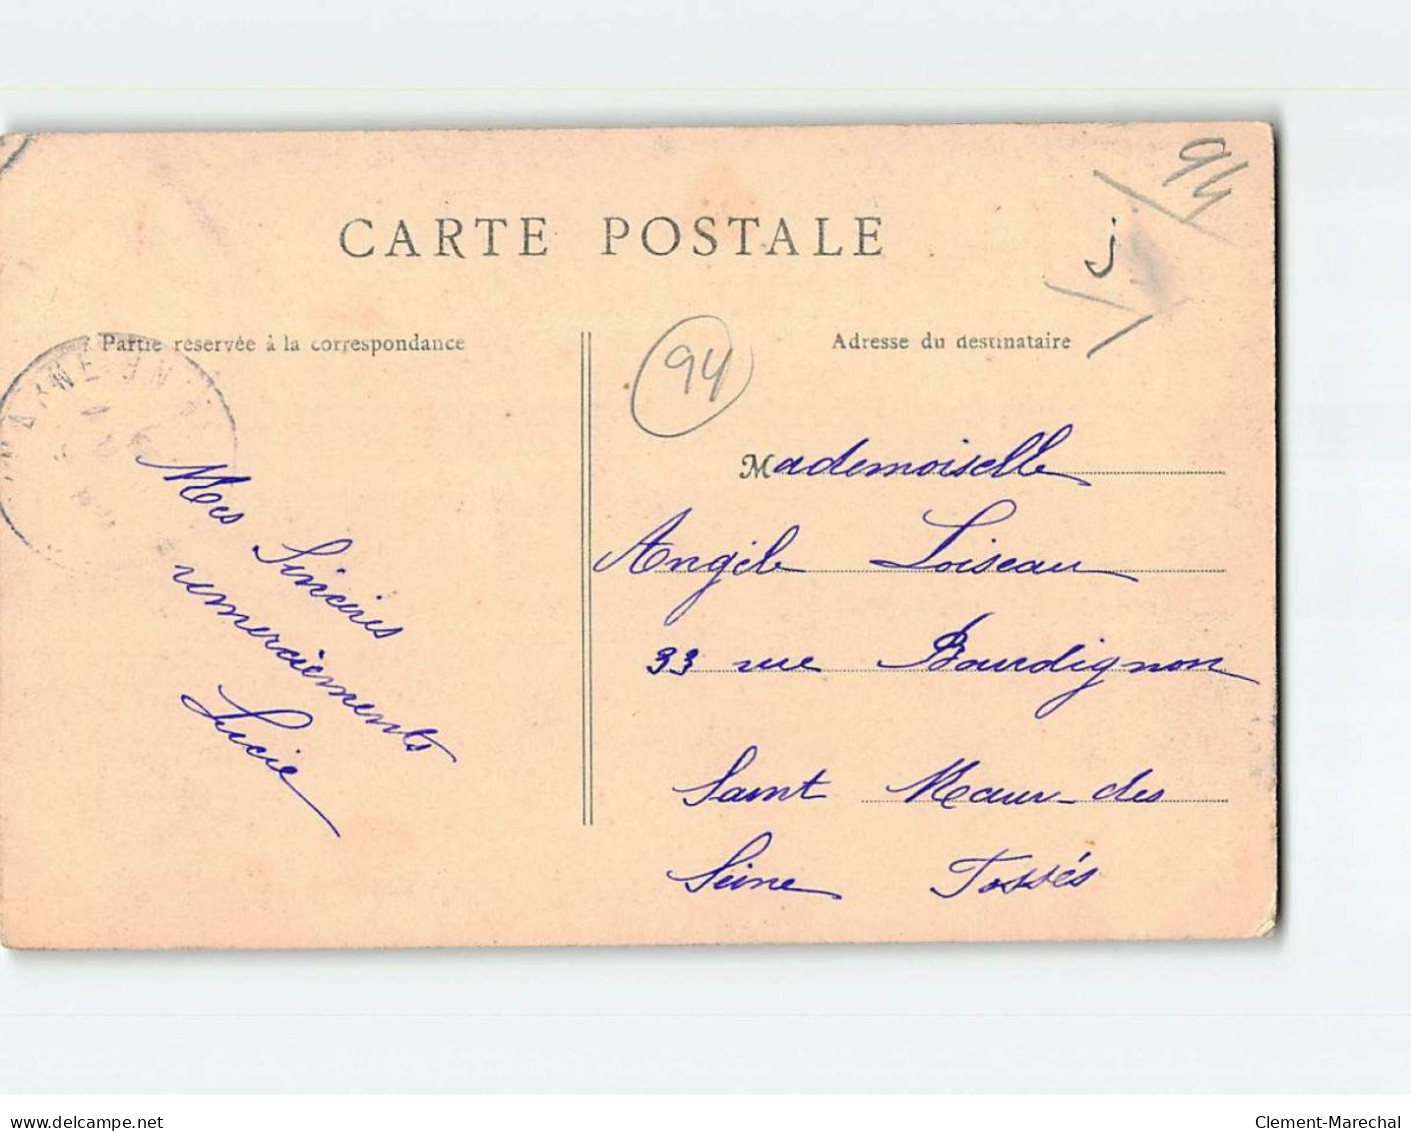 94
j
CARTE POSTALE
Partie réservée à la correspondance
Adresse du destinataire
94
Mademoiselle
Angèle Loiseau
33 rue Bourdignon
Saint Maur-des
Seine Fossés
Mes Sincères
remerciements
Lucie
delcampe.net
Clement-Marechal